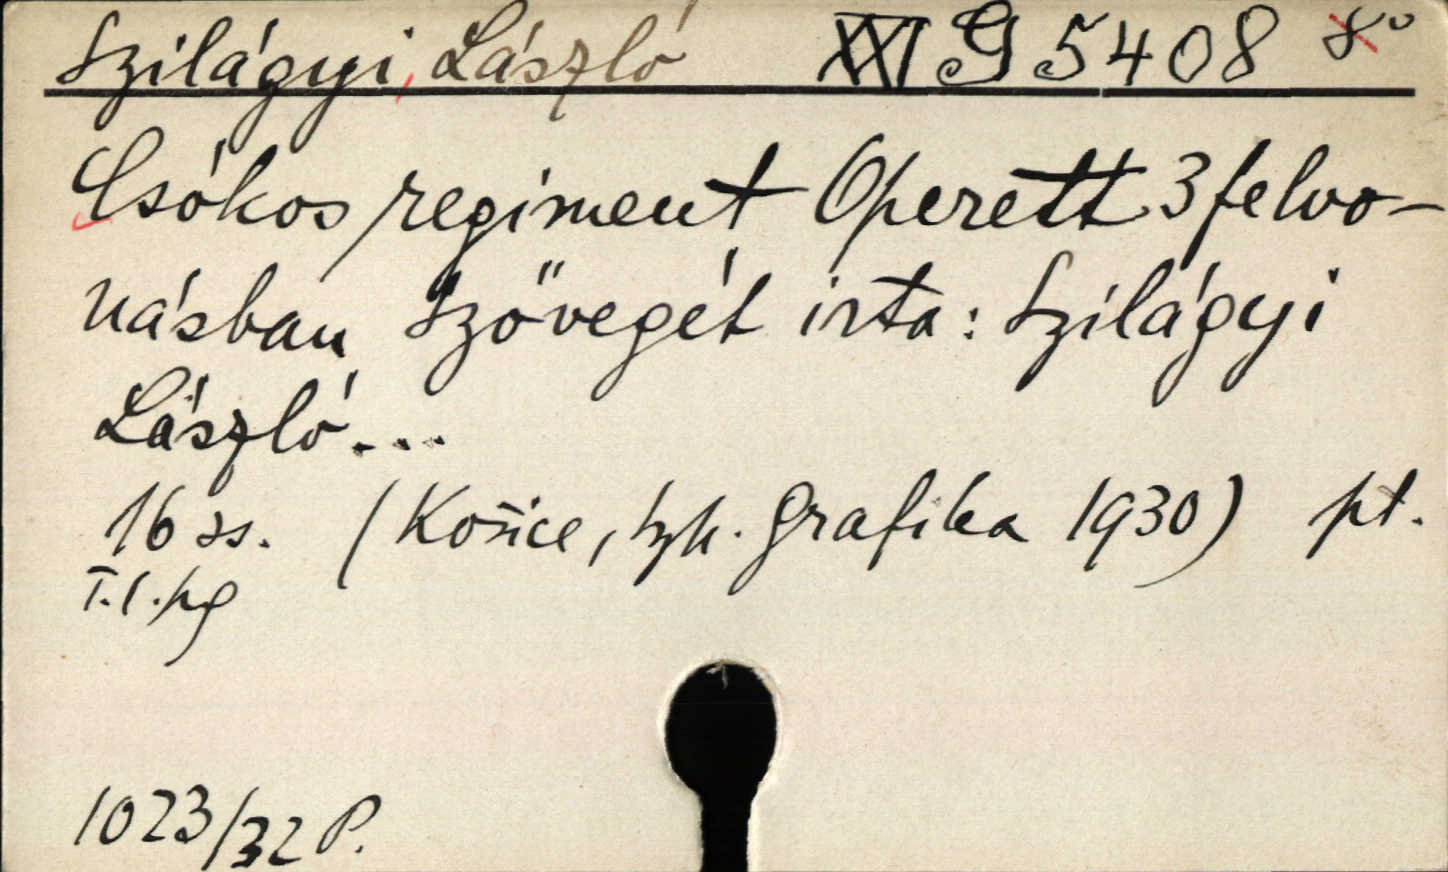 Szilágyi, László XXI G 5408 8°
Csókos regiment Operett 3 felvo-
násban Szövegét irta: Szilágyi
László...
16 ss. (Košice, tzk. Grafika 1930) pt.
T.l.pg
1023/32 P.